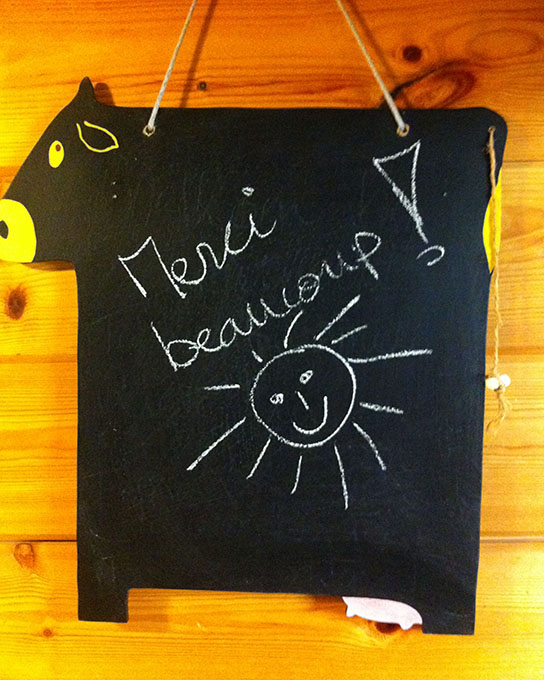 Merci
beaucoup!